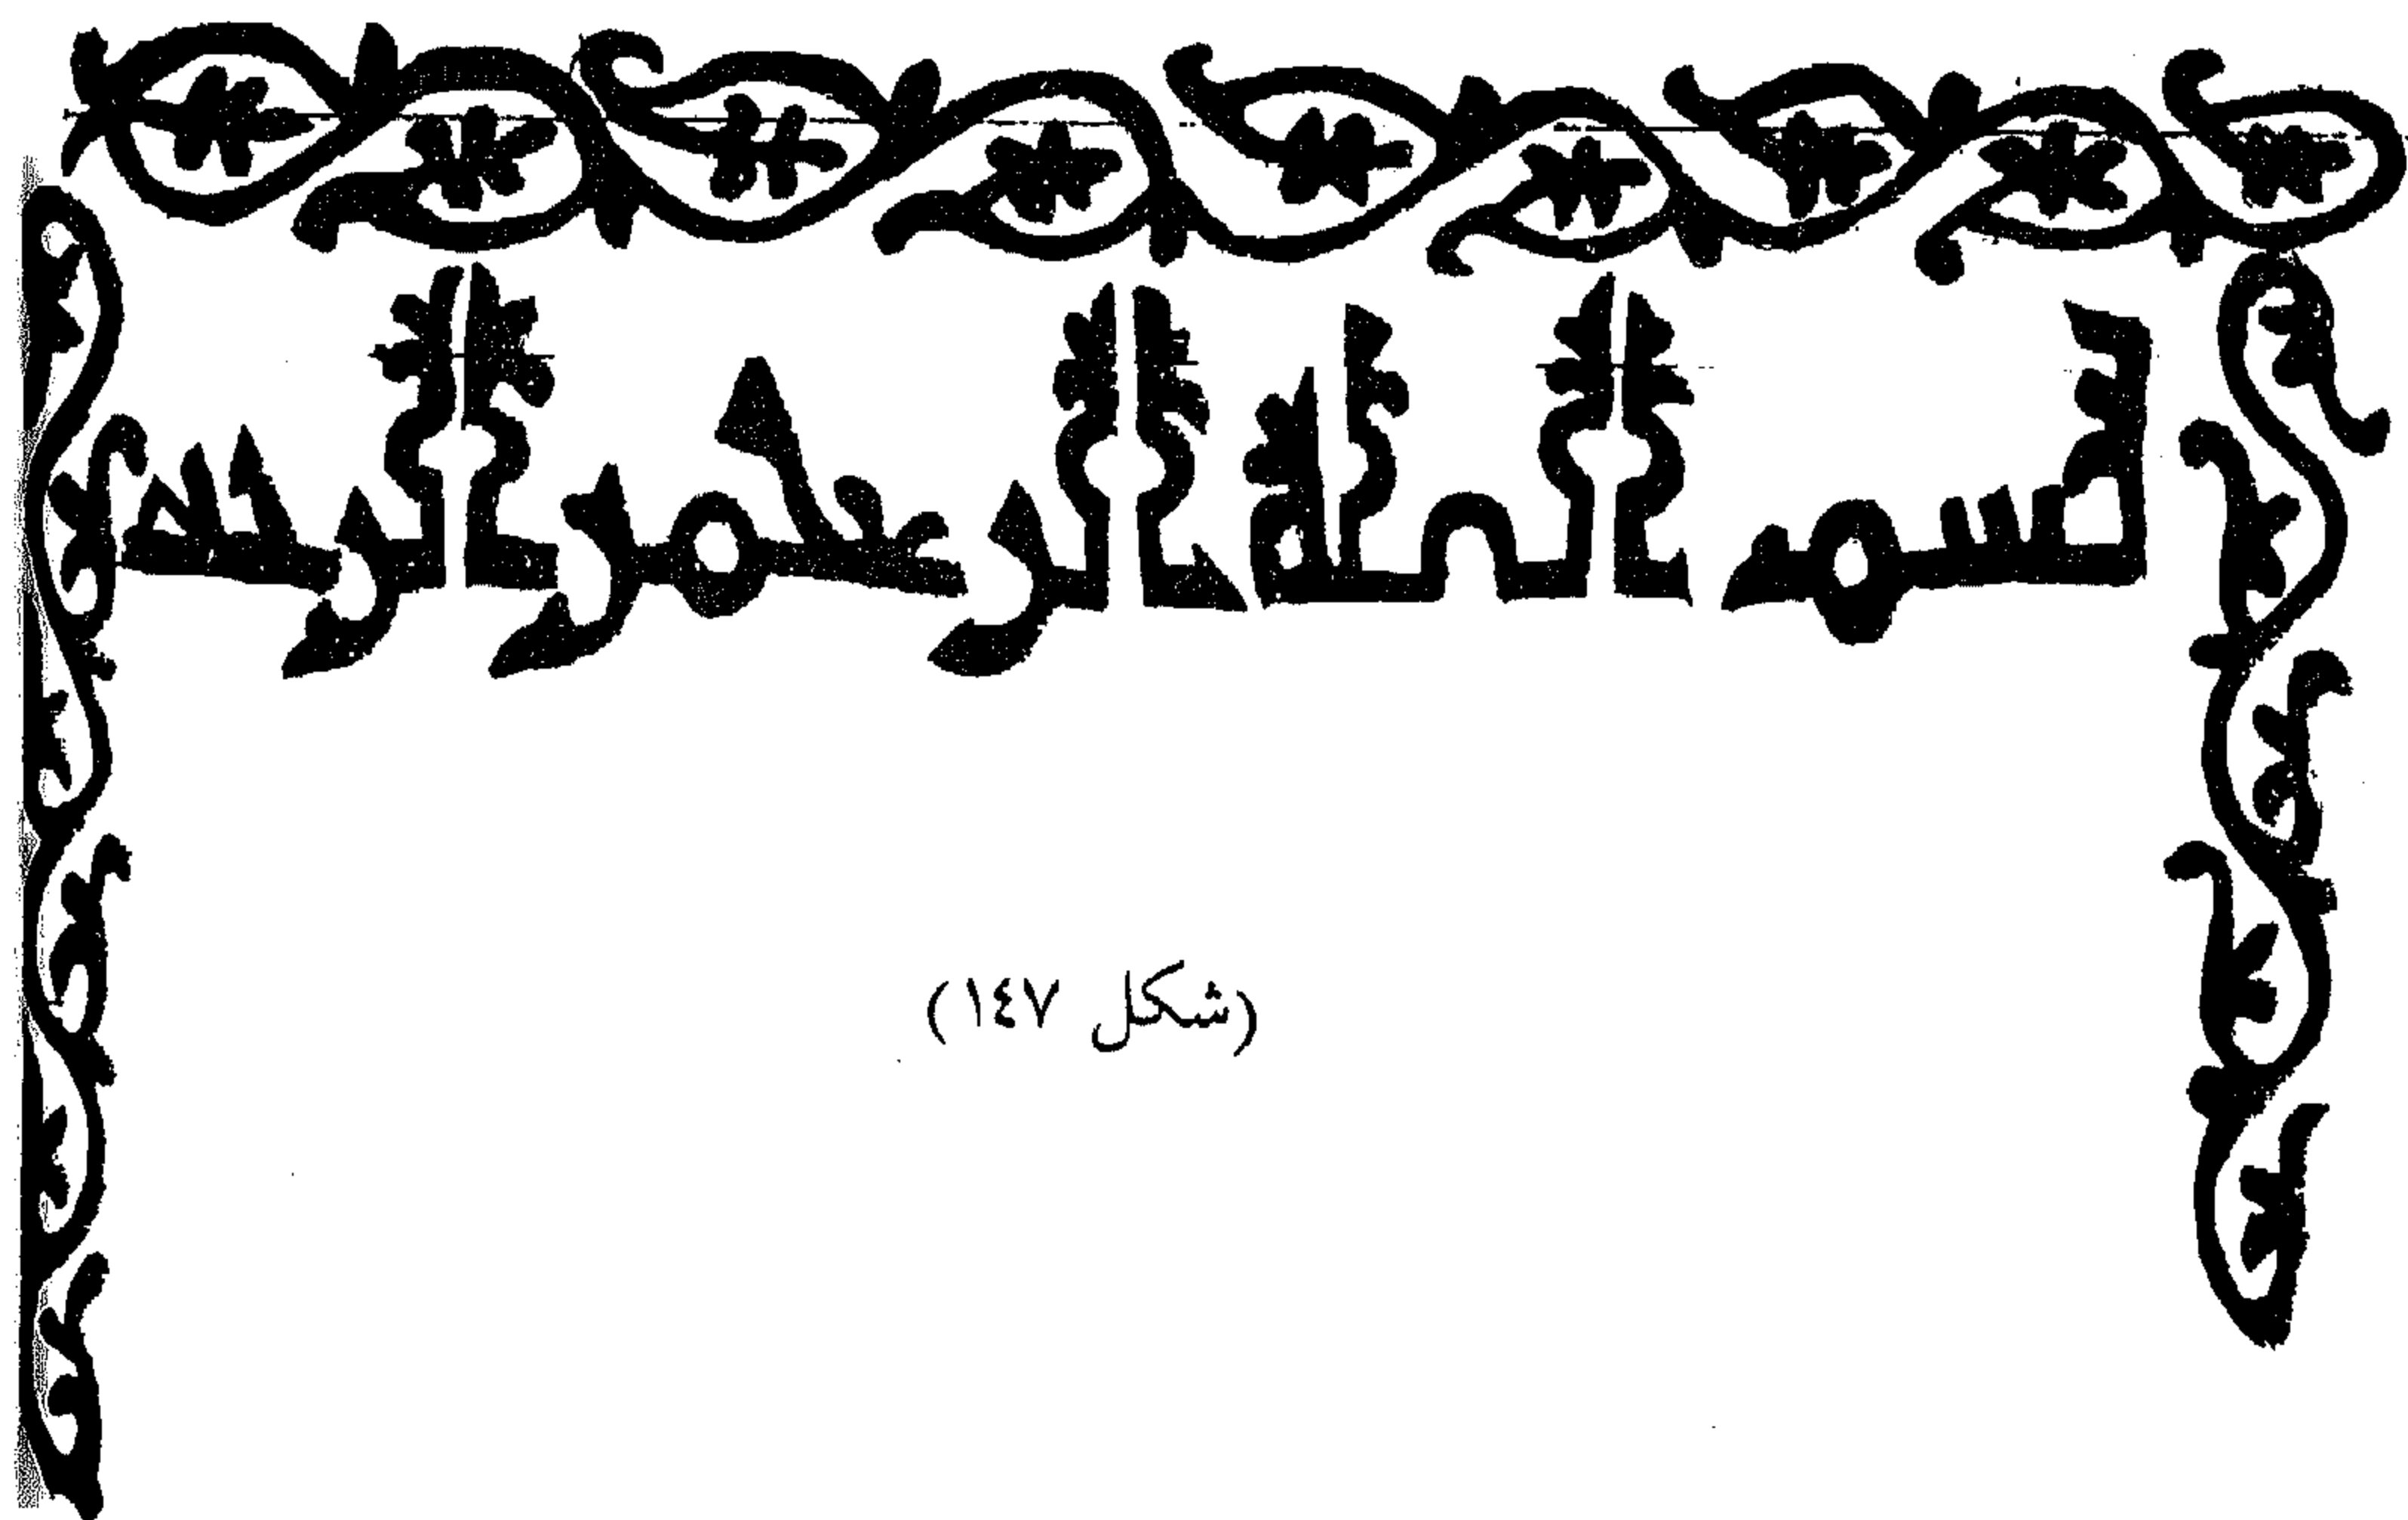 بسم الله الرحمن الرحيم
(شكل ١٤٧)